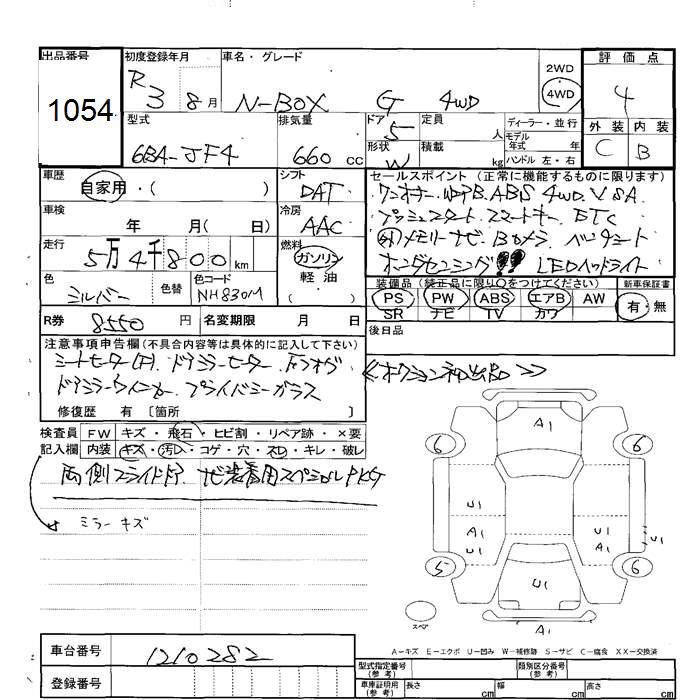 出品番号 初度登録年月 車名・グレード 評価点
1054 R3 8月 N-BOX G 4WD 2WD 4WD 4
型式 排気量 ドア 定員 ディーラー・並行 外装 内装
6BA-JF4 660 cc 5 人 モデル年式 年 C B
形状 積載 ハンドル 左・右
W kg
車歴 シフト セールスポイント (正常に機能するものに限ります)
自家用・( ) DAT ワンオーナー WエアB. ABS 4WD. VSA
車検 冷房 プッシュスタート スマートキー ETC
年 月( 日) AAC 外メモリーナビ Bカメラ ベンチシート
走行 燃料 ホンダセンシング!! LEDヘッドライト
5万4千800 km ガソリン 軽油 ( )
色 色替 色コード 装備品 (純正品に限り○をつけてください) 新車保証書
シルバー NH830M PS PW ABS エアB AW 有・無
SR ナビ TV カワ
R券 8550 円 名変期限 月 日 後日品
注意事項申告欄(不具合内容等は具体的に記入して下さい)
シートヒーター(F). ドアミラーヒーター
ドアミラーウインカー. プライバシーガラス
≪オークション初出品≫
修復歴 有 〔箇所 〕
検査員 FW キズ・飛石・ヒビ割・リペア跡・×要
記入欄 内装 キズ・汚レ・コゲ・穴・スレ・キレ・破レ
両側スライドドア ナビ装着用スペシャルPKG
ミラーキズ
A1
6 6
U1 U1
A1 A1
U1 U1
5 6
U1
スペア A1
A-キズ E-エクボ U-凹み W-補修跡 S-サビ C-腐食 XX-交換済
車台番号 1210282
型式指定番号 (参考) 類別区分番号 (参考)
登録番号 車庫証明用 (参考) 長さ cm 幅 cm 高さ cm